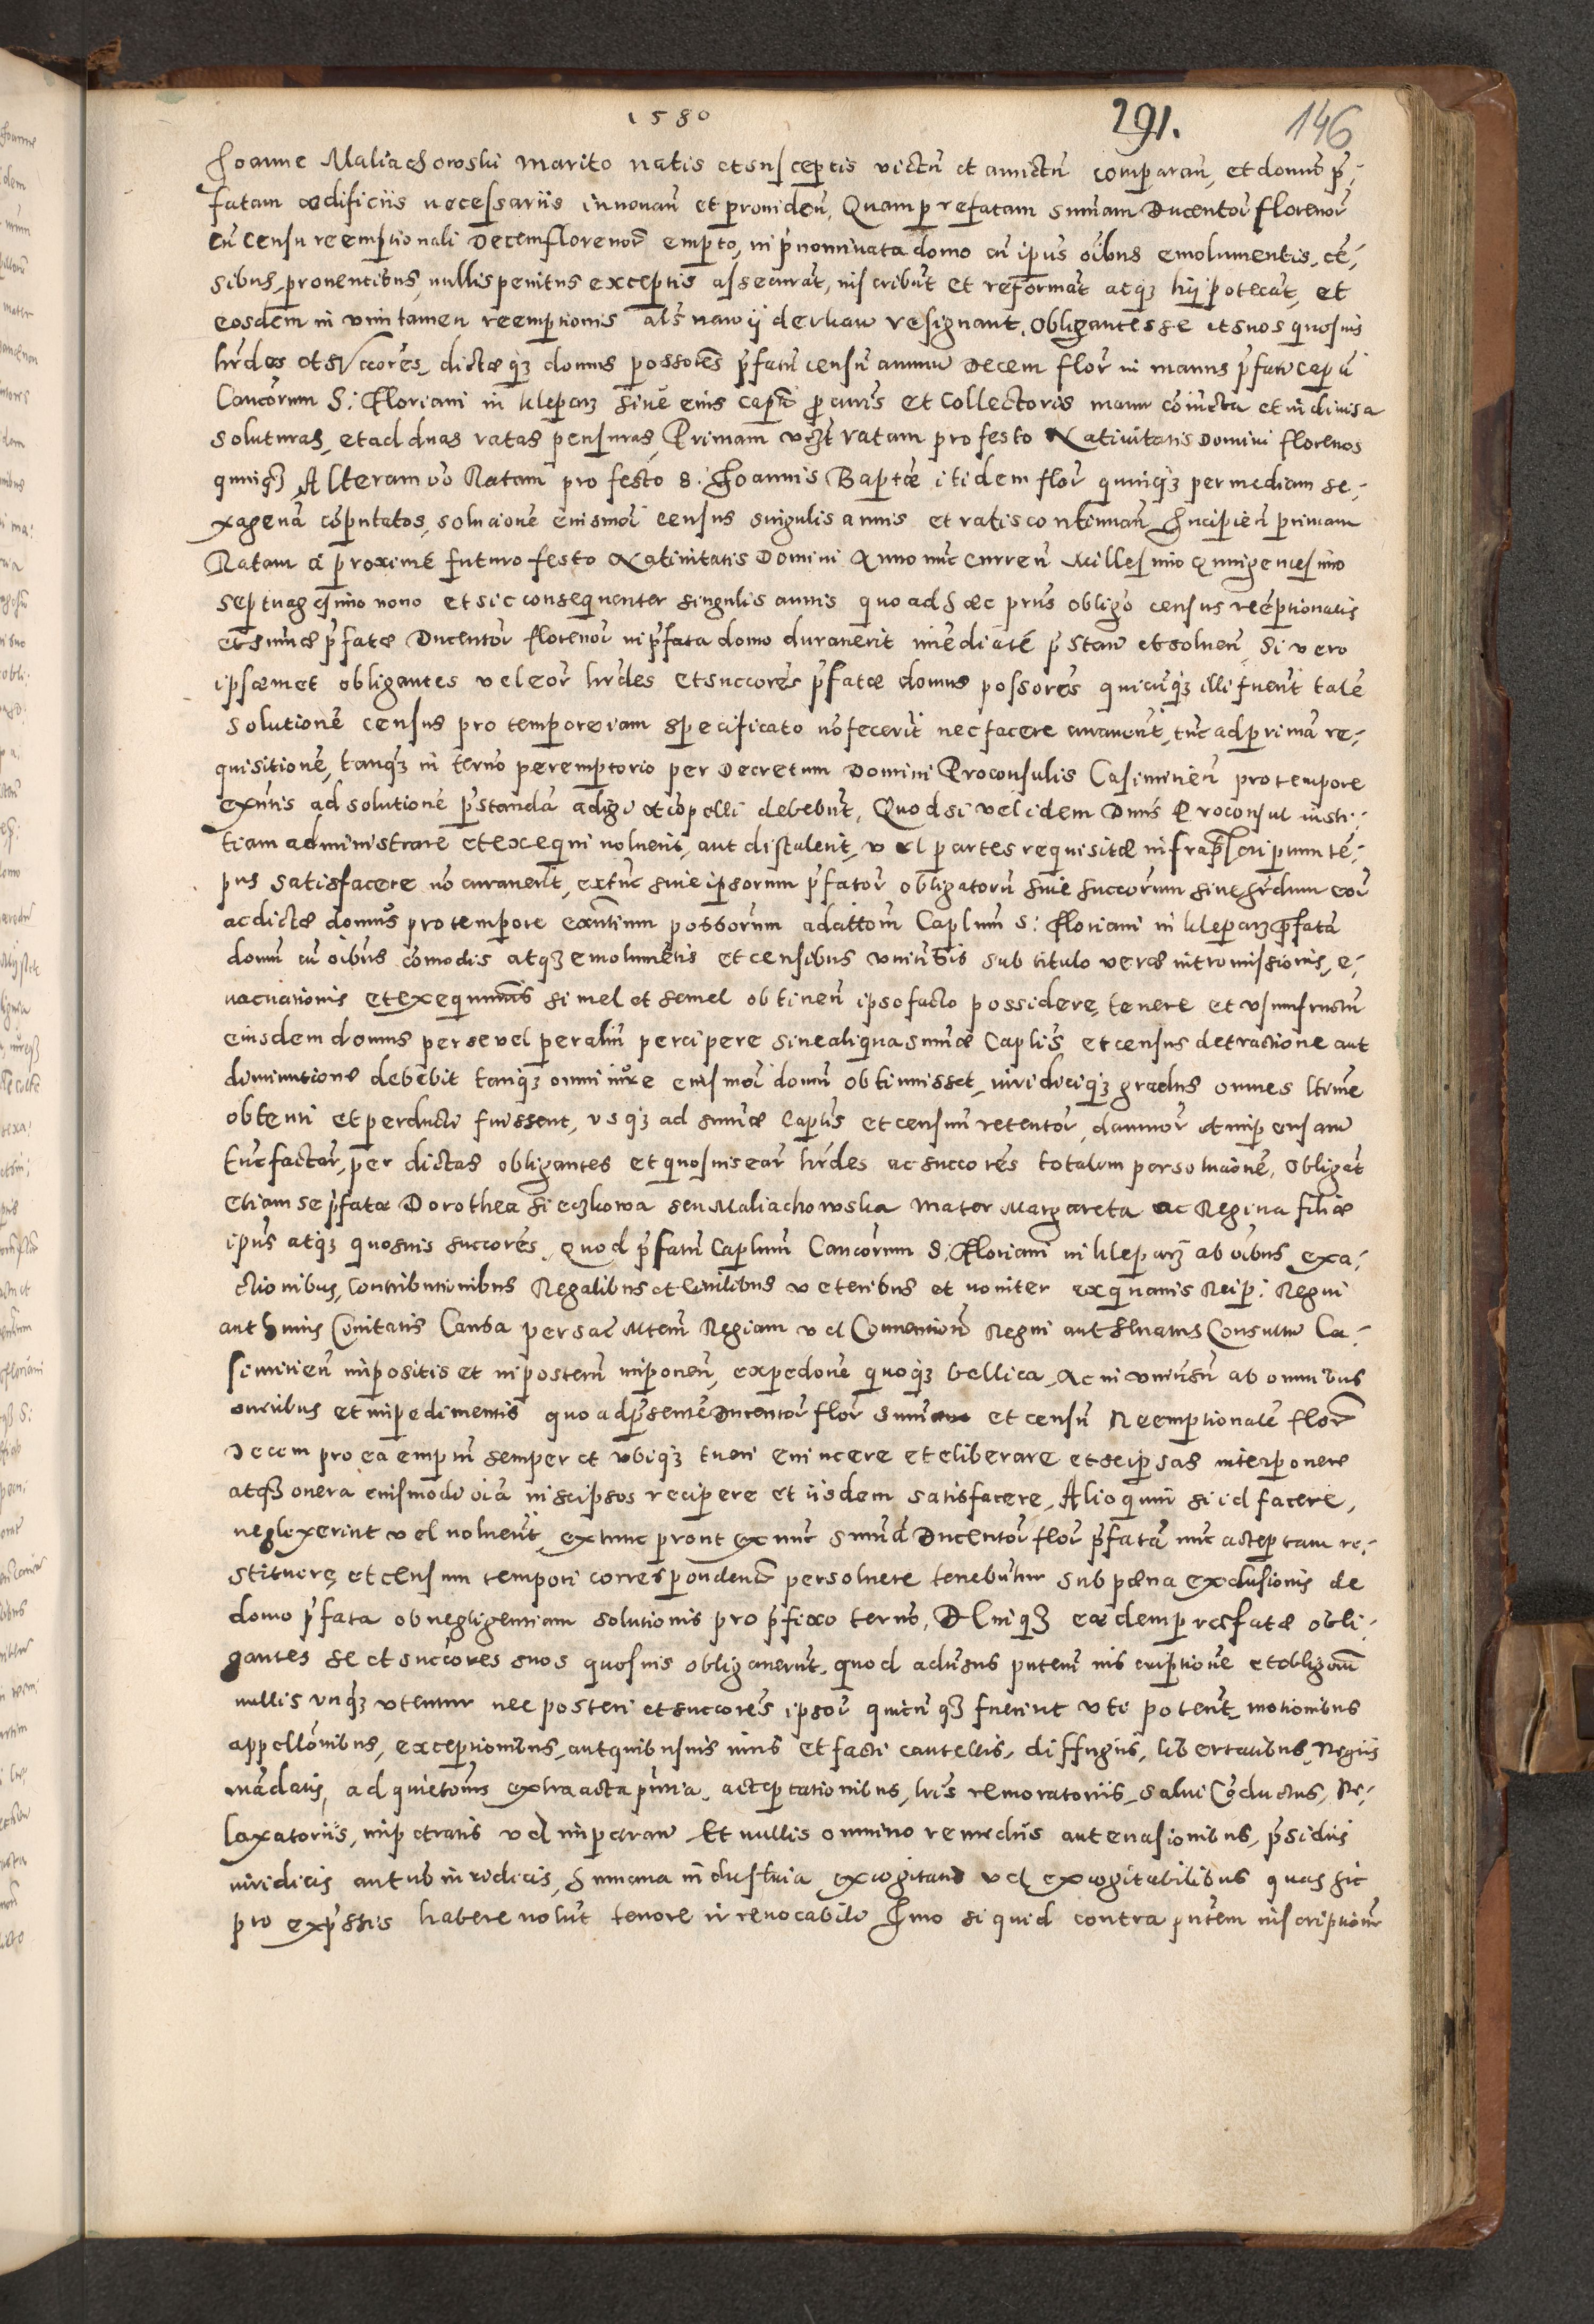 1580
291.
146
Joanne Maliachowski marito natis et susceptis victū et amictū comparan̄, et domū p̄¬
fatam ædificiis necessariis innouan̄ et prouiden̄, Quam præfatam sum̄am Ducentor̄ florenor̄
cū censu reemptionali Decem florenor̄ empto, in p̄nominata domo cū ip̄ius oı̄bus emolumentis, cē¬
sibus, prouentibus, nullis penitus exceptis assecurāt, inscribūt et reformāt atq3 hijpotecāt, et
eosdem in vim tamen reemptionis al̄s na wijderkaw resignant. Obligantes se et suos quosuis
hrdes et succores, dictæq3 domus possores p̄fatū censū annuū Decem flor̄ in manus p̄fati capl̄i
Cancorum S: Floriani in Kleparz siue eius capl̄i p̄curis et Collectoris manu cōiuncta et indiuisa
soluturas, et ad duas ratas pensuras, Primam vz̄t ratam pro festo Natiuitatis Domini florenos
quinq3, Alteram v̄o Ratam pro festo S: Joannis Baptæ itidem flor̄ quinq3 per mediam se¬
xagenā cōputatos, soluc̄ione eiusmōi census singulis annis et ratis continuan̄ Incipien̄ primam
Ratam à proximè futuro festo Natiuitatis Domini Anno nūc curren̄ Millesimo Quingentesimo
septuagesimo nono et sic consequenter singulis annis quoad hæc p̄ns obligō census reēptionalis
et sum̄æ p̄fatæ Ducentor̄ florenor̄ in p̄fata domo durauerit im̄ediatè p̄stan̄ et soluen̄. Si vero
ipsæmet obligantes vel eor̄ hrdes et succores p̄fatæ domus possores quicūq3 illi fuerīt talē
solutionē census pro tempore iam specificato nō fecerīt nec facere curauerīt, tūc ad primā re¬
quisitionē, tanq3 in termō peremptorio per Decretum Domini Proconsulis Casimirien̄ pro tempore
exn̄tis ad solutionē p̄standā adigi et cōpelli debebūt. Quod si vel idem Dnus Proconsul iusti¬
tiam administrare et exequi noluerit, aut distulerit, vel partes requisitæ infrap̄scriptum tē¬
pus satisfacere nō curauerīt, extūc siue ipsorum p̄fator̄ obligatorū siue succorum siue hrdum eor̄
ac dictæ domus pro tempore exn̄tium possorum ad actōm Caplum S: Floriani in Kleparz p̄fatā
domū cū oı̄bus cōmodis atq3 emolumētis et censibus vniūsis sub titulo veræ intromissionis, e¬
uacuationis et exequutōis simel et semel obtinen̄ ipso facto possidere, tenere et vsumfructū
eiusdem domus per se vel per aliū percipere sine aliqua sum̄æ Caplis et census detractione aut
diminutione debebit tanq3 omni iure eiusmōi domū obtinuisset, iuridiciq3 gradus omnes ltime
obtenti et perducti fuissent, vsq3 ad sum̄æ Caplis et censuū retentor̄, damnor̄ et impensarū
tūc factar̄, per dictas obligantes et quosuis ear̄ hrdes ac succores totalem persolucionē. Obligāt
etiam se p̄fatæ Dorothea Sieczkowa seu Maliachowska mater Margareta ac Regina filiæ
ip̄ius atq3 quosuis succores, quod p̄fatū Caplum Cancorum S: Floriani in Kleparz ab oı̄bus exa¬
ctionibus, Contributionibus Regalibus et Ciuilibus veteribus et nouiter ex quauis Reip: Regni
aut huius Ciuitatis Causa per sac̄ Mtem Regiam vel Conuentionē Regni aut senatus Consultū Ca¬
simirien̄ impositis et in posterū imponen̄, expedōne quoq3 bellica, ac in vniuersū ab omnibus
oneribus et impedimentis quoad p̄sentē Ducentor̄ flor̄ sum̄am et censū Reemptionalē flor̄
Decem pro ea emptū semper et vbiq3 tueri euincere et eliberare et seipsas interponere
atq3 onera eiusmodi oı̄a in seipsos recipere et iisdem satisfacere, Alioquin si id facere,
neglexerint vel noluerīt, extunc prout ex nūc sum̄ā Ducentor̄ flor̄ p̄fatā nūc acceptam re¬
stituere, et censum tempori correspondentē persoluere tenebūtur sub pœna exclusionis de
domo p̄fata ob negligentiam solutionis pro p̄fixo termō, Deniq3 eædem præfatæ obli¬
gantes se et succores suos quosuis obligauerūt, quod aduersus p̄ntem inscriptionē et obligōem
nullis vnq3 vtentur nec posteri et succores ipsor̄ quicūq3 fuerint vti poterīt, motionibus
appellōnibus, exceptionibus, aut quibusuis iuris et facti cautellis, diffugiis, libertatibus, Regiis
mādatis, ad quietōnis extra acta p̄ntia, acceptationibus, lris remoratoriis, salui Cōductus, Re¬
laxatoriis, impetratis vel impetran̄ Et nullis omnino remediis aut euasionibus, p̄sidiis
iuridicis aut ub in ridicis, humana industria excogitatis vel excogitabilibus quas hic
pro expssis habere volūt tenore irreuocabili Imo si quid contra pn̄tem inscriptionē